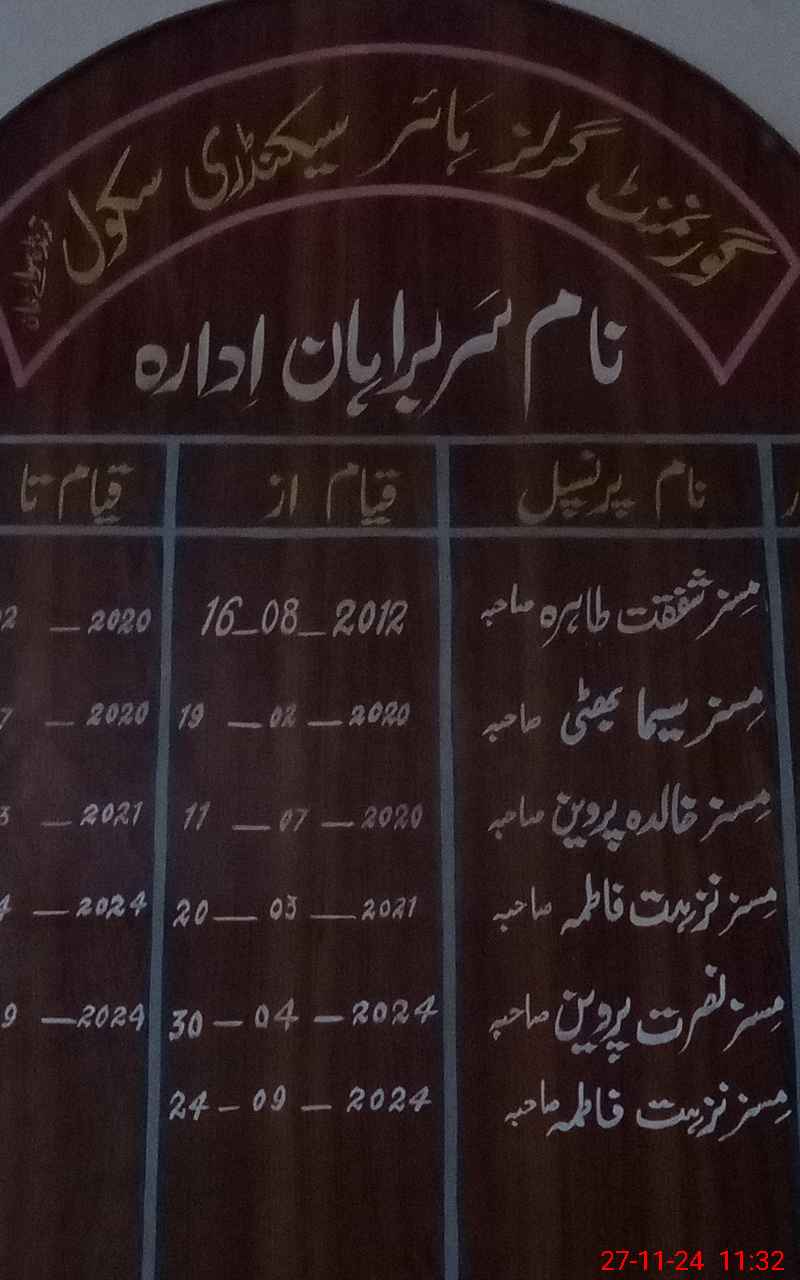 گورنمنٹ گرلز ہائر سیکنڈری سکول
نام سربراہان ادارہ
نام پرنسپل قیام از قیام تا
مسز شفقت طاہرہ صاحبہ 16_08_2012 2 — 2020
مسز سیما بھٹی صاحبہ 19 — 02 — 2020 7 — 2020
مسز خالدہ پروین صاحبہ 11 — 07 — 2020 3 — 2021
مسز نزہت فاطمہ صاحبہ 20 — 03 — 2021 4 — 2024
مسز نصرت پروین صاحبہ 30 — 04 — 2024 9 — 2024
مسز نزہت فاطمہ صاحبہ 24 — 09 — 2024
27-11-24 11:32